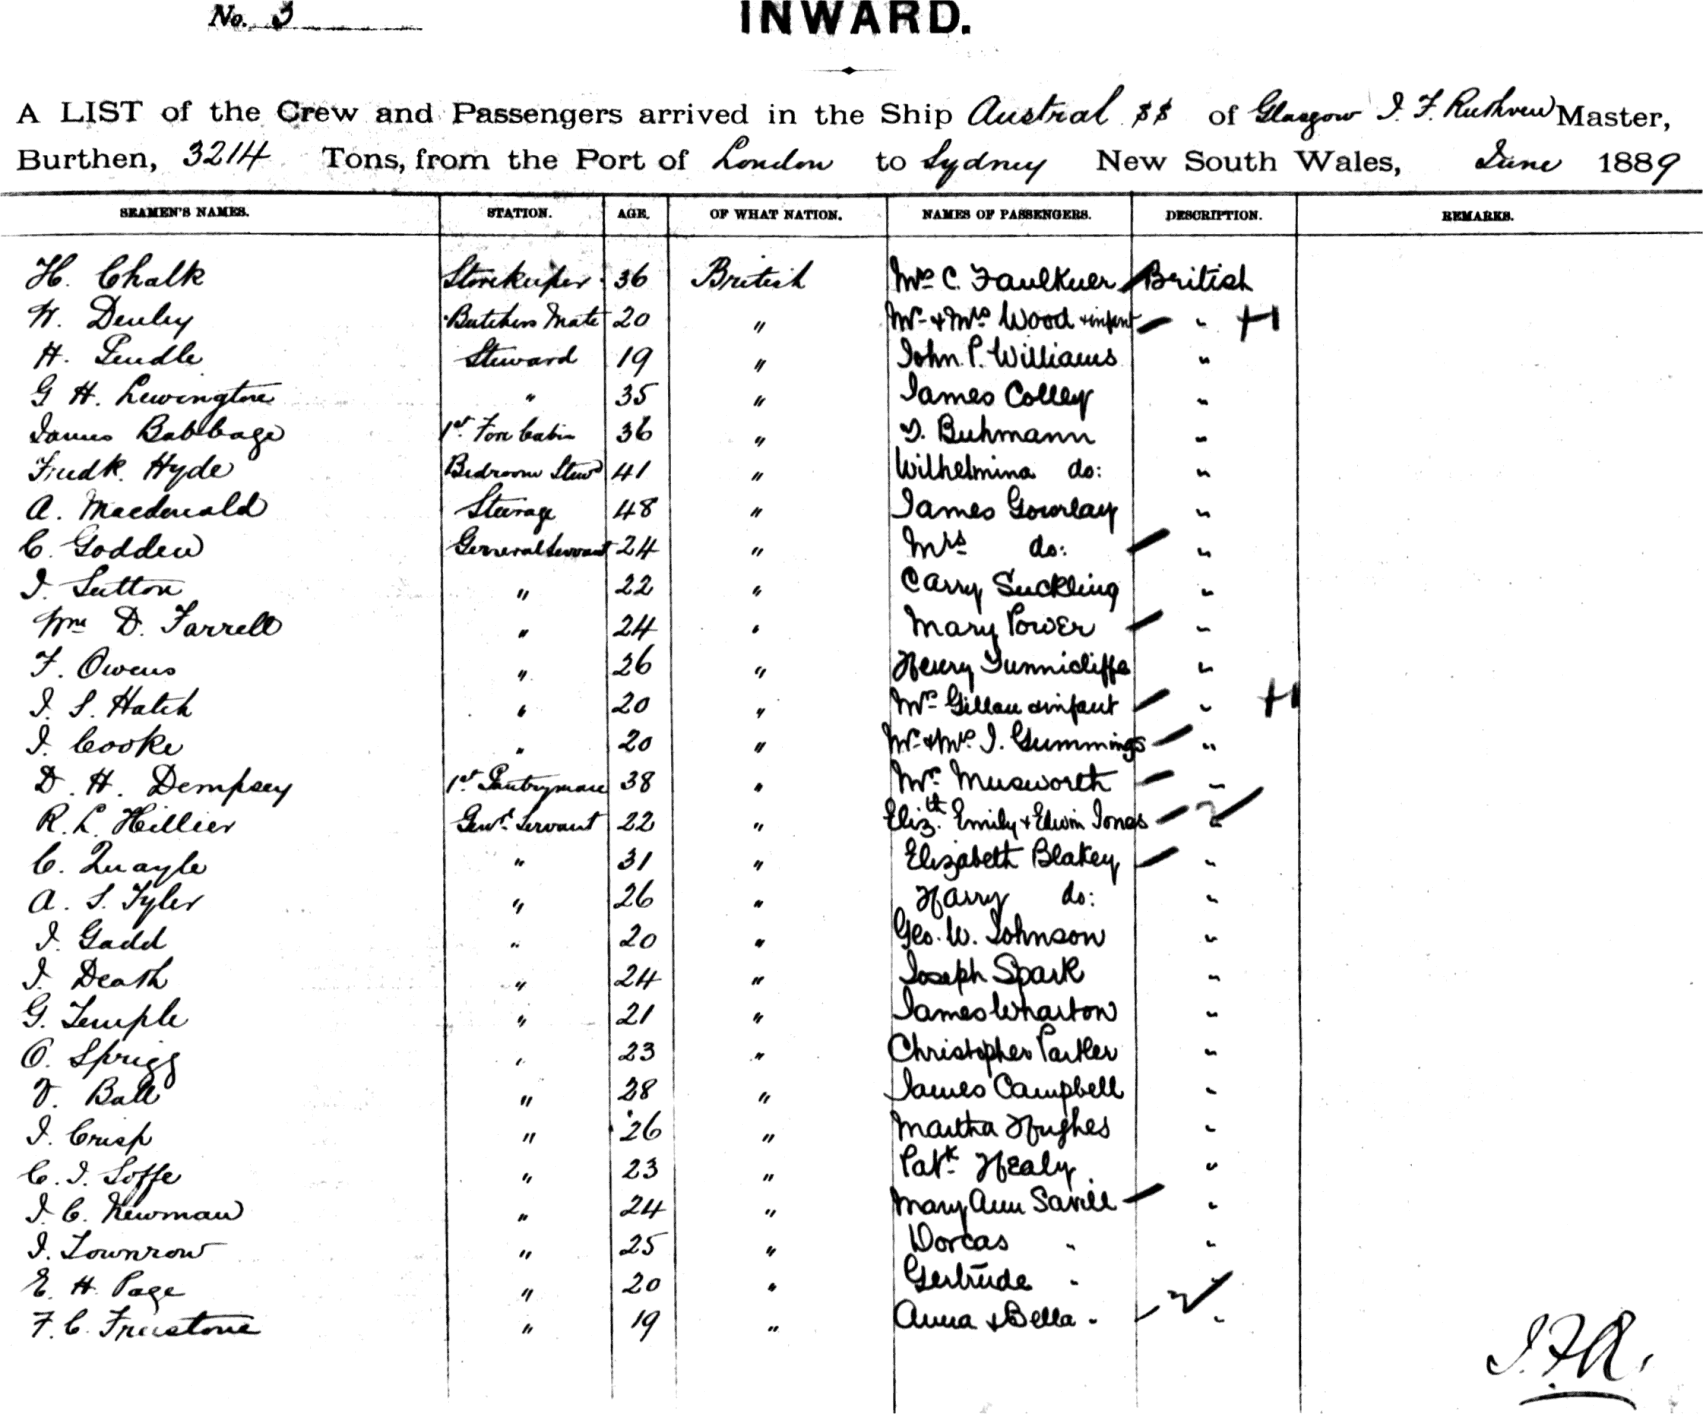 No. 3
INWARD.
A LIST of the Crew and Passengers arrived in the Ship Austral SS of Glasgow J. F. Ruthven Master,
Burthen, 3214 Tons, from the Port of London to Sydney New South Wales, June 1889
SEAMEN'S NAMES. STATION. AGE. OF WHAT NATION. NAMES OF PASSENGERS. DESCRIPTION. REMARKS.
H. Chalk Storekeeper 36 British Mrs C. Faulkner British
W. Denley Butchers Mate 20 " Mr & Mrs Wood & infant " H
H. Pendle Steward 19 " John P. Williams "
G H. Lewington " 35 " James Colley "
James Babbage 1st Fore Cabin 36 " Buhmann "
Fredk. Hyde Bedroom Stewd 41 " Wilhelmina do: "
A. Macdonald Steerage 48 " James Gourlay "
C. Godden General Servant 24 " Mrs do: "
J. Sutton " 22 " Carry Suckling "
Wm D. Farrell " 24 " Mary Power "
F. Owens " 26 " Henry Tunnicliffe "
J. S. Hatch " 20 " Mrs Gillan & infant " H
J. Cooke " 20 " Mr & Mrs J. Gummings "
D. H. Dempsey 1st Pantryman 38 " Mr. Musworth "
R. L. Hillier Genl. Servant 22 " Elizth. Emily & Edwin Jones "
C. Quayle " 31 " Elizabeth Blakey "
A. S. Tyler " 26 " Harry do: "
J. Gadd " 20 " Geo. W. Johnson "
J. Death " 24 " Joseph Spark "
G. Temple " 21 " James Wharton "
O. Sprigg " 23 " Christopher Parker "
V. Ball " 28 " James Campbell "
J. Crisp " 26 " Martha Hughes "
C. J. Soffe " 23 " Patk. Healy "
J. C. Newman " 24 " Mary Ann Savill "
J. Townrow " 25 " Dorcas " "
E. H. Page " 20 " Gertrude "
F. C. Freestone " 19 " Anna & Bella " "
J.F.R.